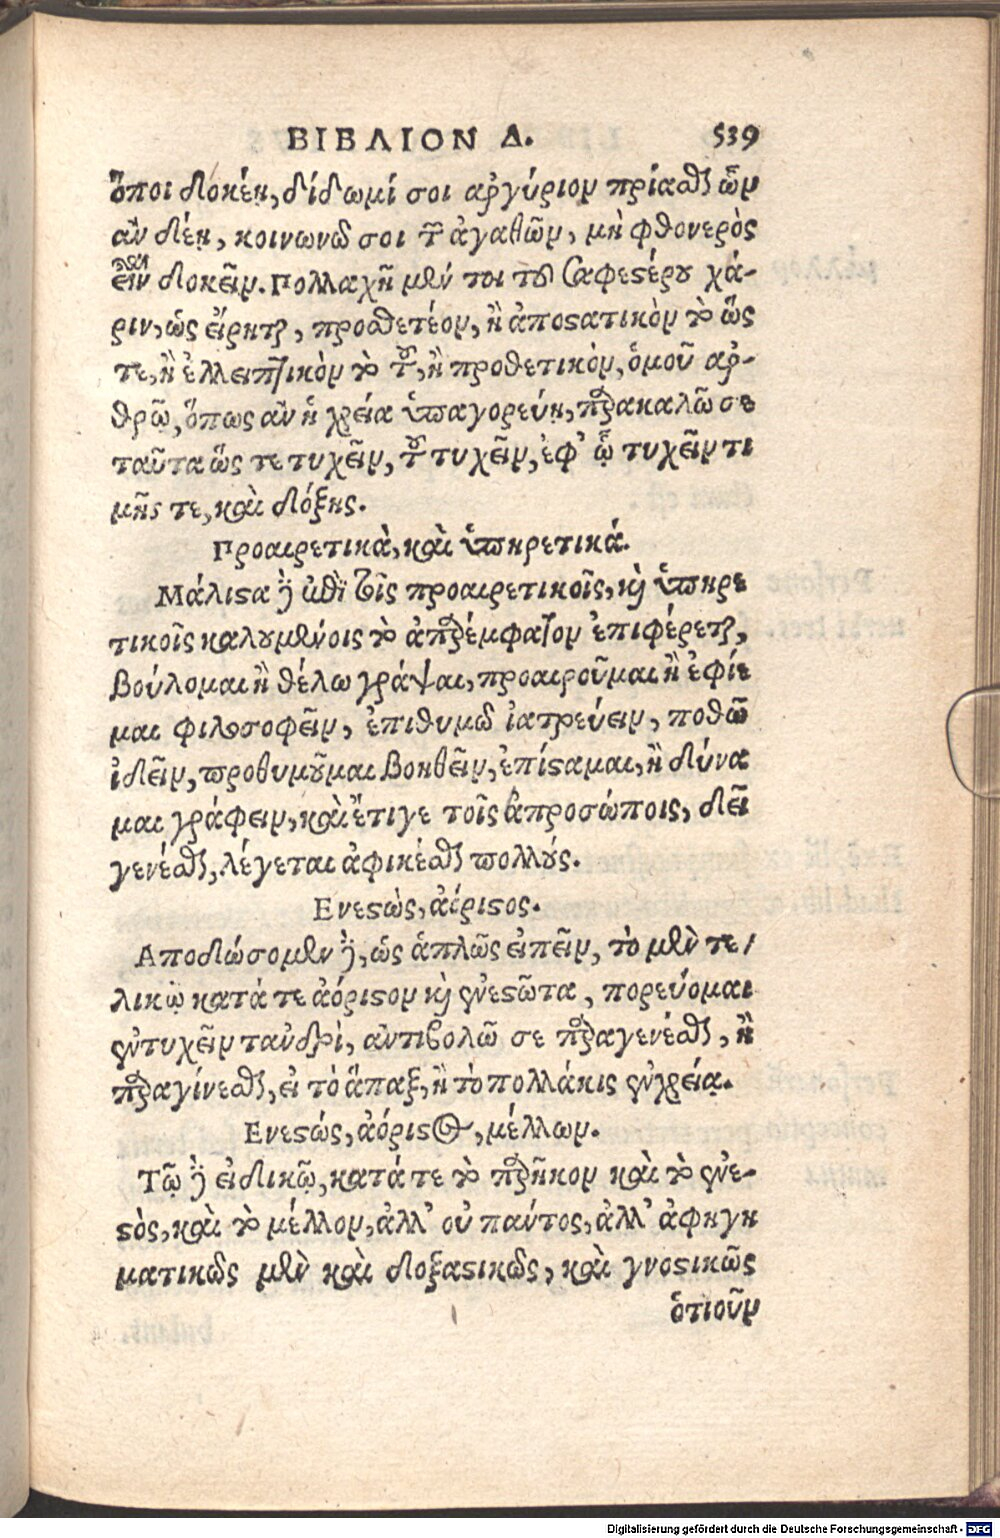 ΒΙΒΛΙΟΝ Δ. 539
ὅποι δοκέῃ, δίδωμί σοι ἀργύριον πρίαθαι ὧν
ἂν δέῃ, κοινωνῶ σοι τῶν ἀγαθῶν, μὴ φθονερὸς
εἶναι δοκεῖν. Πολλαχῆ μέν τοι τοῦ σαφεστέρου χά-
ριν, ὡς εἴρηται, προσθετέον, ἢ ἀποστατικὸν τὸ ὥς
τε, ἢ ἐλλειπτικὸν τὸ τοῦ, ἢ προθετικὸν, ὁμοῦ ἄρ-
θρῳ, ὅπως ἂν ἡ χρεία ὑπαγορεύῃ, παρακαλῶ σε
ταῦτα ὥς τε τυχεῖν, τοῦ τυχεῖν, ἐφ' ᾧ τυχεῖν τι
μῆς τε, καὶ δόξης.
Προαιρετικὰ, καὶ ὑπηρετικά.
Μάλιστα δὲ ἐπὶ τοῖς προαιρετικοῖς, καὶ ὑπηρε
τικοῖς καλουμένοις τὸ ἀπαρέμφατον ἐπιφέρεται,
βούλομαι ἢ θέλω γράψαι, προαιροῦμαι ἢ ἐφίε
μαι φιλοσοφεῖν, ἐπιθυμῶ ἰατρεύειν, ποθῶ
ἰδεῖν, προθυμοῦμαι βοηθεῖν, ἐπίσταμαι, ἢ δύνα
μαι γράφειν, καὶ ἔτι γε τοῖς ἀπροσώποις, δεῖ
γενέσθαι, λέγεται ἀφικέσθαι πολλούς.
Ενεστὼς, ἀόριστος.
Αποδώσομεν δὲ, ὡς ἁπλῶς εἰπεῖν, τὸ μὲν τε/
λικῷ κατά τε ἀόριστον καὶ ἐνεστῶτα, πορεύομαι
ἐντυχεῖν τἀνδρὶ, ἀντιβολῶ σε παραγενέσθαι, ἢ
παραγίνεσθαι, εἰ τὸ ἅπαξ, ἢ τὸ πολλάκις ἐν χρείᾳ.
Ενεστώς, ἀόριστος, μέλλων.
Τῷ δὲ εἰδικῷ, κατά τε τὸ παρῆκον καὶ τὸ ἐνε-
στὸς, καὶ τὸ μέλλον, ἀλλ' οὐ παντος, ἀλλ' ἀφηγη
ματικῶς μὲν καὶ δοξαστικῶς, καὶ γνοστικῶς
ὁτιοῦν
Digitalisierung gefördert durch die Deutsche Forschungsgemeinschaft - DFG